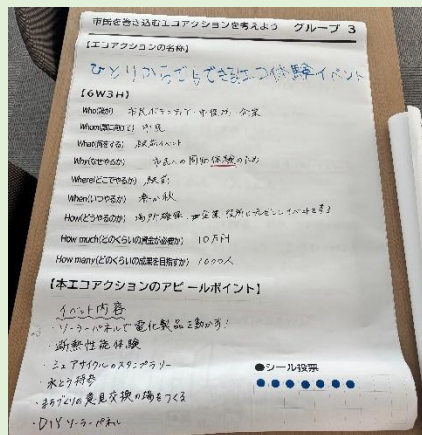 市民を巻き込むエコアクションを考えよう グループ 3
【エコアクションの名称】
ひとりからでもできるエコ体験イベント
【6W3H】
Who(誰が) 市民ボランティア・市役所、企業
Whom(誰に向けて) 市民
What(何をする) 駅前イベント
Why(なぜやるか) 市民への周知体験のため
Where(どこでやるか) 駅前
When(いつやるか) 春か秋
How(どうやるのか) 場所確保、企業、役所にプレゼンしイベントをする
How much(どのくらいの資金が必要か) 10万円
How many(どのくらいの成果を目指すか) 1000人
【本エコアクションのアピールポイント】
イベント内容
・ソーラーパネルで電化製品を動かす!
・断熱性能体験
・シェアサイクルのスタンプラリー
・氷とう将棋
・まちづくりの意見交換の場をつくる
・DIYソーラーパネル
●シール投票